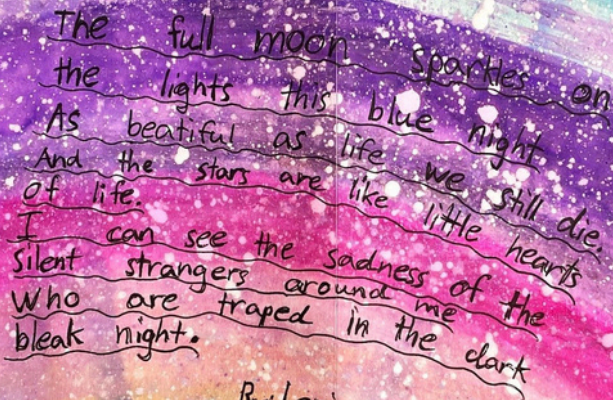 The full moon sparkles on
the lights this blue night
As beatiful as life we still die.
And the stars are like little hearts
of life.
I can see the sadness of the
Silent strangers around me
who are traped in the dark
bleak night.